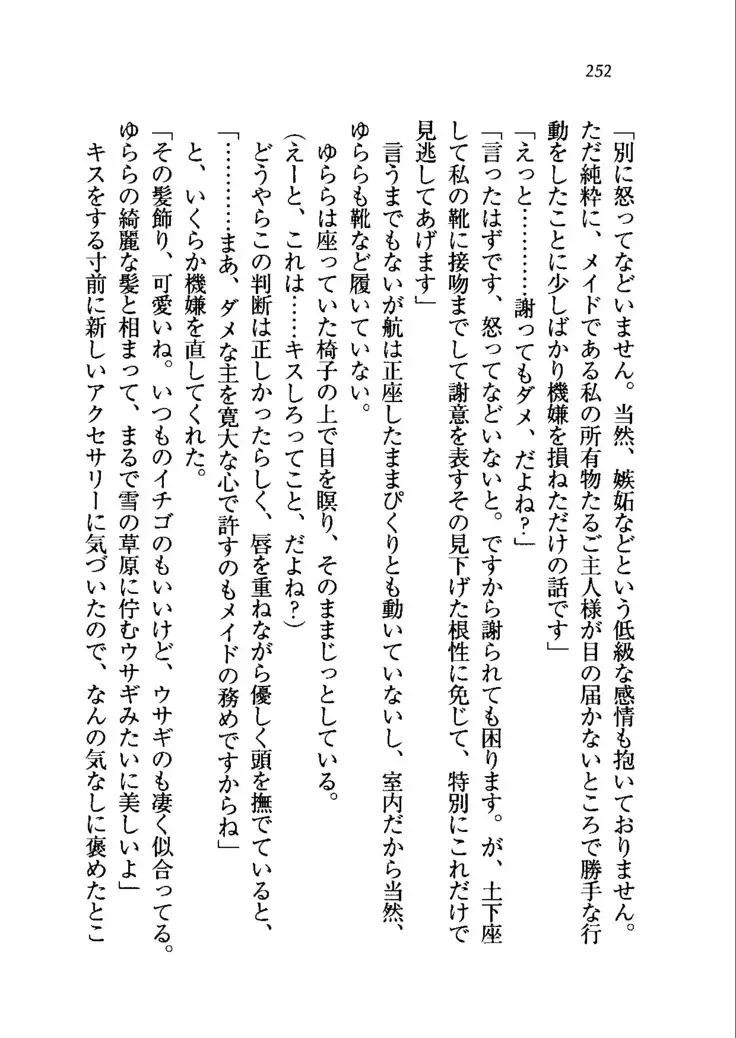 252
「別に怒ってなどいません。当然、嫉妬などという低級な感情も抱いておりません。
ただ純粋に、メイドである私の所有物たるご主人様が目の届かないところで勝手な行
動をしたことに少しばかり機嫌を損ねただけの話です」
「えっと…………謝ってもダメ、だよね?」
「言ったはずです、怒ってなどいないと。ですから謝られても困ります。が、土下座
して私の靴に接吻までして謝意を表すその見下げた根性に免じて、特別にこれだけで
見逃してあげます」
言うまでもないが航は正座したままぴくりとも動いていないし、室内だから当然、
ゆららも靴など履いていない。
ゆららは座っていた椅子の上で目を瞑り、そのままじっとしている。
(えーと、これは……キスしろってこと、だよね?)
どうやらこの判断は正しかったらしく、唇を重ねながら優しく頭を撫でていると、
「…………まあ、ダメな主を寛大な心で許すのもメイドの務めですからね」
と、いくらか機嫌を直してくれた。
「その髪飾り、可愛いね。いつものイチゴのもいいけど、ウサギのも凄く似合ってる。
ゆららの綺麗な髪と相まって、まるで雪の草原に佇むウサギみたいに美しいよ」
キスをする寸前に新しいアクセサリーに気づいたので、なんの気なしに褒めたとこ